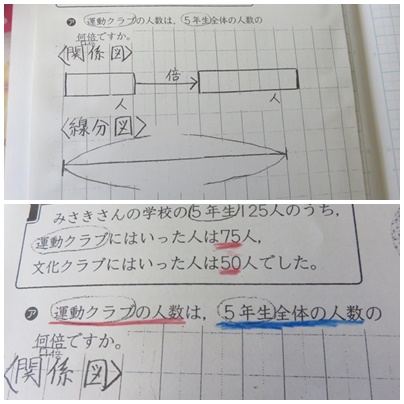 ㋐ 運動クラブの人数は、5年生全体の人数の
何倍ですか。
〈関係図〉
倍
人
人
〈線分図〉
みさきさんの学校の5年生125人のうち、
運動クラブにはいった人は75人、
文化クラブにはいった人は50人でした。
㋐ 運動クラブの人数は、5年生全体の人数の
何倍ですか。
〈関係図〉